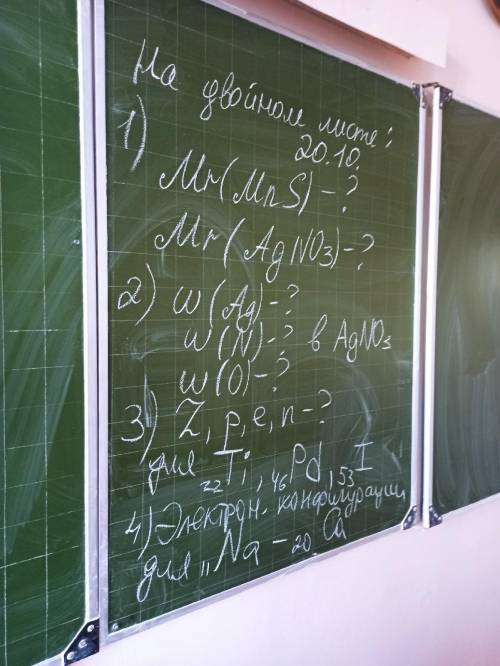 На двойном листе:
20.10.
1)
Mr(MnS) - ?
Mr(AgNO₃) - ?
2) w(Ag) - ?
w(N) - ? в AgNO₃
w(O) - ?
3) Z, p, e, n - ?
для ₂₂Ti, ₄₆Pd, ₅₃I
4) Электрон. конфигурации
для ₁₁Na - ₂₀Ca